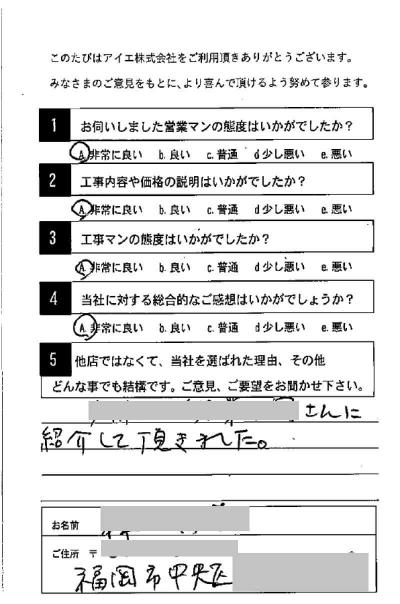 このたびはアイエ株式会社をご利用頂きありがとうございます。
みなさまのご意見をもとに、より喜んで頂けるよう努めて参ります。
1 お伺いしました営業マンの態度はいかがでしたか?
A.非常に良い b.良い c.普通 d少し悪い e.悪い
2 工事内容や価格の説明はいかがでしたか?
A.非常に良い b.良い c.普通 d少し悪い e.悪い
3 工事マンの態度はいかがでしたか?
A.非常に良い b.良い c.普通 d少し悪い e.悪い
4 当社に対する総合的なご感想はいかがでしょうか?
A.非常に良い b.良い c.普通 d少し悪い e.悪い
5 他店ではなくて、当社を選ばれた理由、その他
どんな事でも結構です。ご意見、ご要望をお聞かせ下さい。
さんに
紹介して頂きました。
お名前
ご住所 〒
福岡市中央区